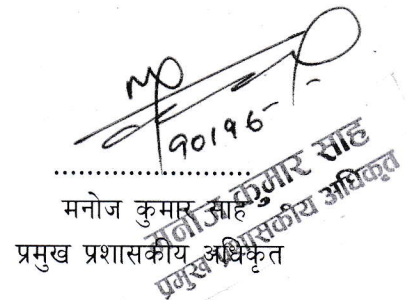 ....................................
मनोज कुमार साह
प्रमुख प्रशासकीय अधिकृत
मनोज कुमार साह
प्रमुख प्रशासकीय अधिकृत